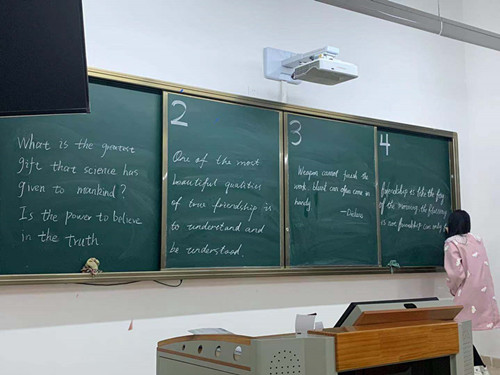 What is the greatest
gift that science has
given to mankind?
Is the power to believe
in the truth
2
One of the most
beautiful qualities
of true friendship is
to understand and
be understood.
3
Weapons cannot the
work, blood can often come in
handy
4
friendship is like the
of the morning, the
is true friendship can only